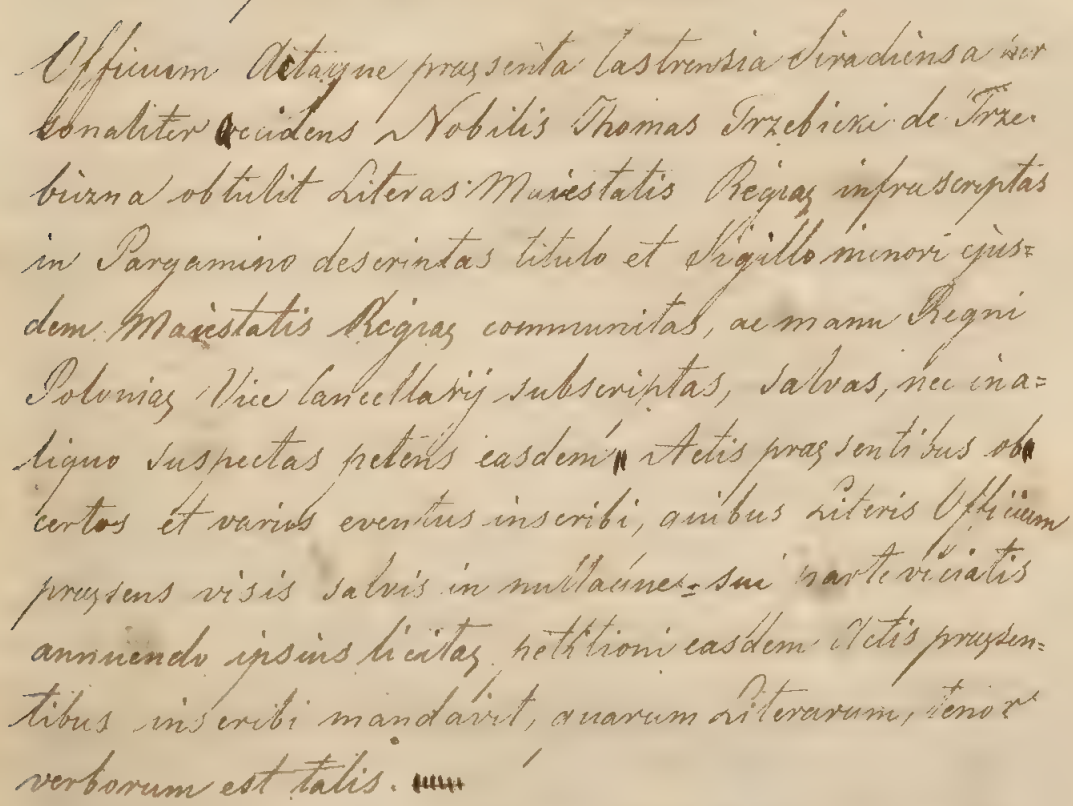 Officium Actaque praęsenta Castrensia Siradiensa per
sonaliter accidens Nobilis Thomas Trzebicki de Trze-
bizna obtulit Literas Maiestatis Regiaę infrascriptas
in Pargamino descriptas titulo et Sigillo minori ejus=
dem Maiestatis Regiaę communitas, ac manu Regni
Poloniaę Vice Cancellarij subscriptas, salvas, nec in a=
liquo suspectas petens easdem Actis praęsentibus ob
certos et varios eventus inscribi, quibus Literis Officium
praęsens visis salvis in nulla sui parte viciatis
annuendo ipsius licitaę petitioni easdem Actis praęsen=
tibus inscribi mandavit, quarum Literarum, tenor
verborum est talis.